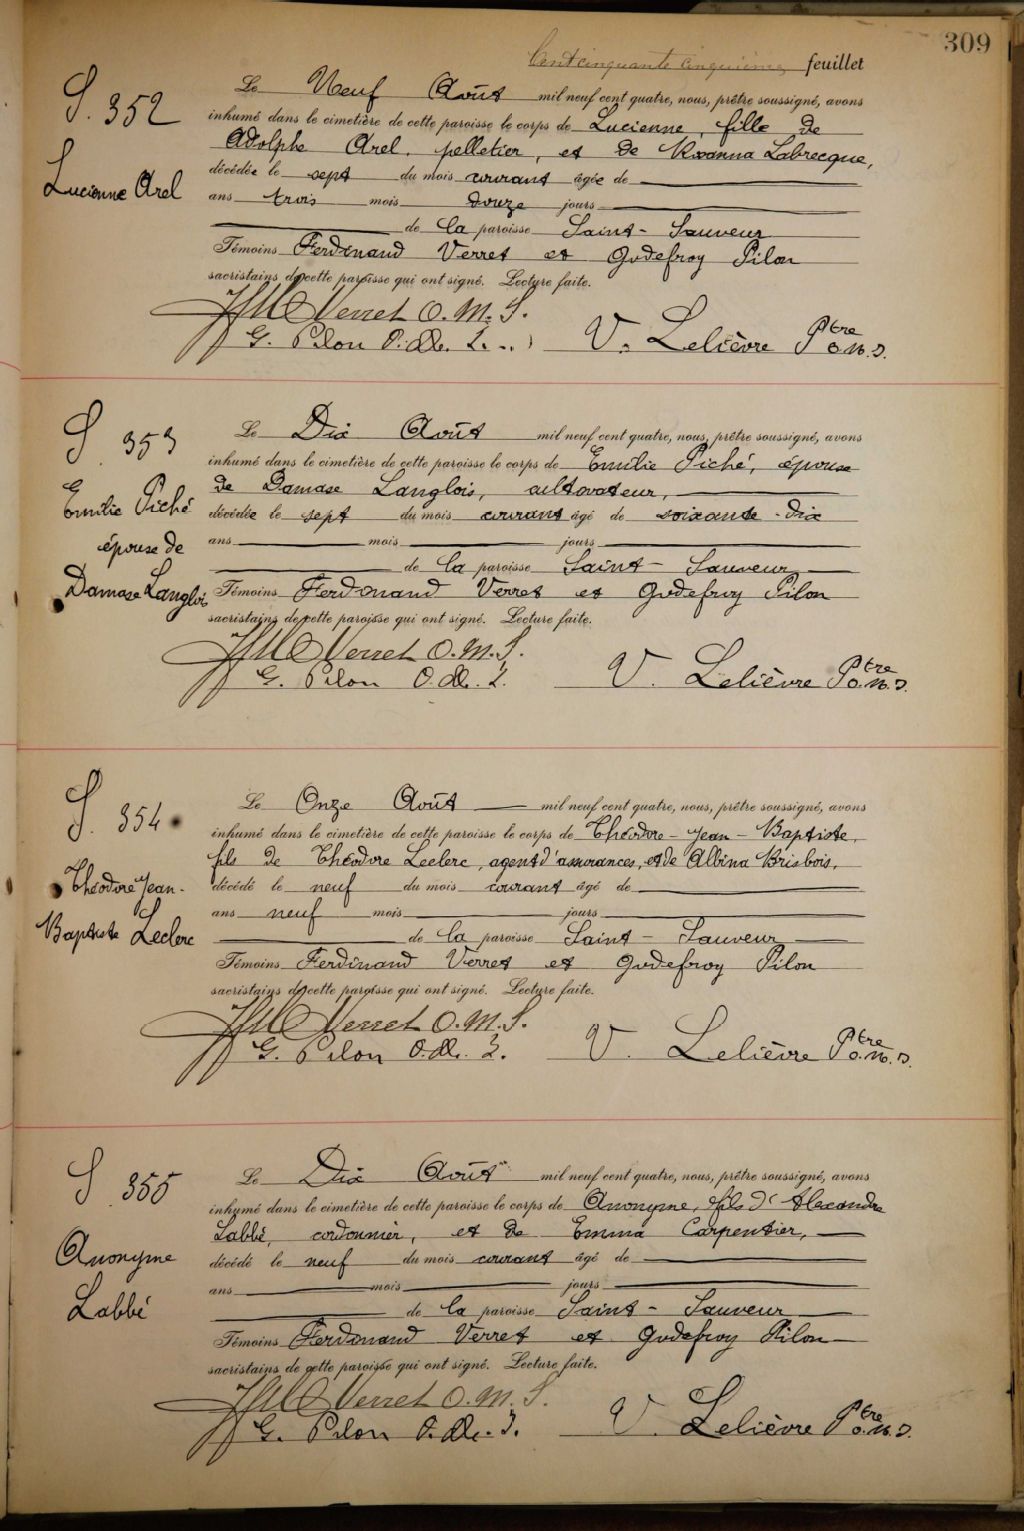 309
Cent cinquante cinquième feuillet
S. 352
Lucienne Arel
Le Neuf Août mil neuf cent quatre, nous, prêtre soussigné, avons
inhumé dans le cimetière de cette paroisse le corps de Lucienne, fille de
Adolphe Arel, pelletier, et de Rosanna Labrecque,
décédée le sept du mois courant âgée de
ans trois mois douze jours
de la paroisse Saint-Sauveur
Témoins Ferdinand Verret et Godefroy Pilon
sacristains de cette paroisse qui ont signé. Lecture faite.
Verret O.M.I.
G. Pilon O.M.I. V. Lelièvre Ptre O.M.I.
S. 353
Emilie Piché
épouse de
Damase Langlois
Le Dix Août mil neuf cent quatre, nous, prêtre soussigné, avons
inhumé dans le cimetière de cette paroisse le corps de Emilie Piché, épouse
de Damase Langlois, cultivateur,
décédée le sept du mois courant âgé de soixante-dix
ans mois jours
de la paroisse Saint-Sauveur
Témoins Ferdinand Verret et Godefroy Pilon
sacristains de cette paroisse qui ont signé. Lecture faite.
Verret O.M.I.
G. Pilon O.M.I. V. Lelièvre Ptre O.M.I.
S. 354
Théodore Jean-
Baptiste Leclerc
Le Onze Août mil neuf cent quatre, nous, prêtre soussigné, avons
inhumé dans le cimetière de cette paroisse le corps de Théodore-Jean-Baptiste,
fils de Théodore Leclerc, agent d'assurances, et de Albina Brisbois,
décédé le neuf du mois courant âgé de
ans neuf mois jours
de la paroisse Saint-Sauveur
Témoins Ferdinand Verret et Godefroy Pilon
sacristains de cette paroisse qui ont signé. Lecture faite.
Verret O.M.I.
G. Pilon O.M.I. V. Lelièvre Ptre O.M.I.
S. 355
Anonyme
Labbé
Le Dix Août mil neuf cent quatre, nous, prêtre soussigné, avons
inhumé dans le cimetière de cette paroisse le corps de Anonyme, fils d'Alexandre
Labbé, cordonnier, et de Emma Carpentier,
décédé le neuf du mois courant âgé de
ans mois jours
de la paroisse Saint-Sauveur
Témoins Ferdinand Verret et Godefroy Pilon
sacristains de cette paroisse qui ont signé. Lecture faite.
Verret O.M.I.
G. Pilon O.M.I. V. Lelièvre Ptre O.M.I.